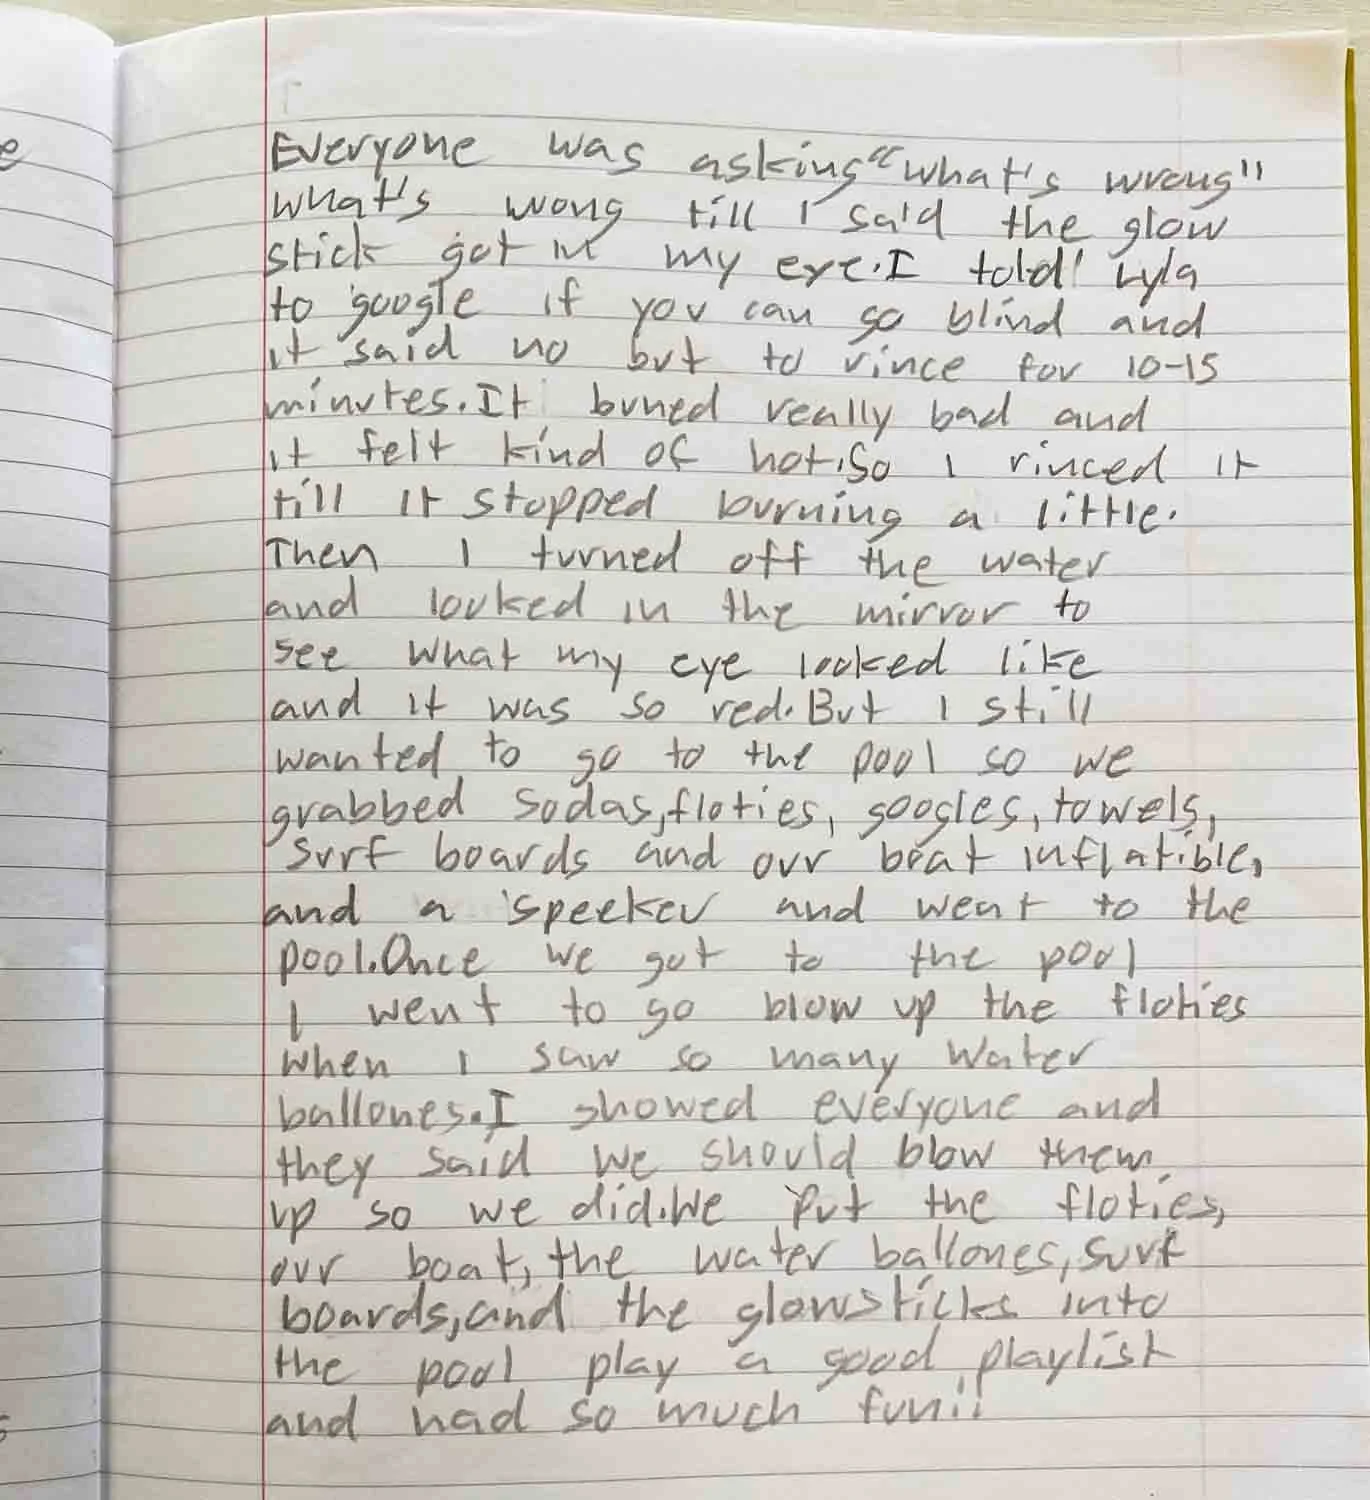 e
Everyone was asking "what's wrong"
what's wrong till I said the glow
stick got in my eye. I told Lyla
to google if you can go blind and
it said no but to rince for 10-15
minutes. It buned really bad and
it felt kind of hot. So I rinced it
till it stopped burning a little.
Then I turned off the water
and looked in the mirror to
see what my eye looked like
and it was so red. But I still
wanted to go to the pool so we
grabbed sodas, floties, googles, towels,
surf boards and our boat inflatible,
and a speeker and went to the
pool. Once we got to the pool
I went to go blow up the floties
when I saw so many water
ballones. I showed everyone and
they said we should blow them
up so we did. We put the floties,
our boat, the water ballones, surf
boards, and the glowsticks into
the pool play a good playlist
and had so much fun!!